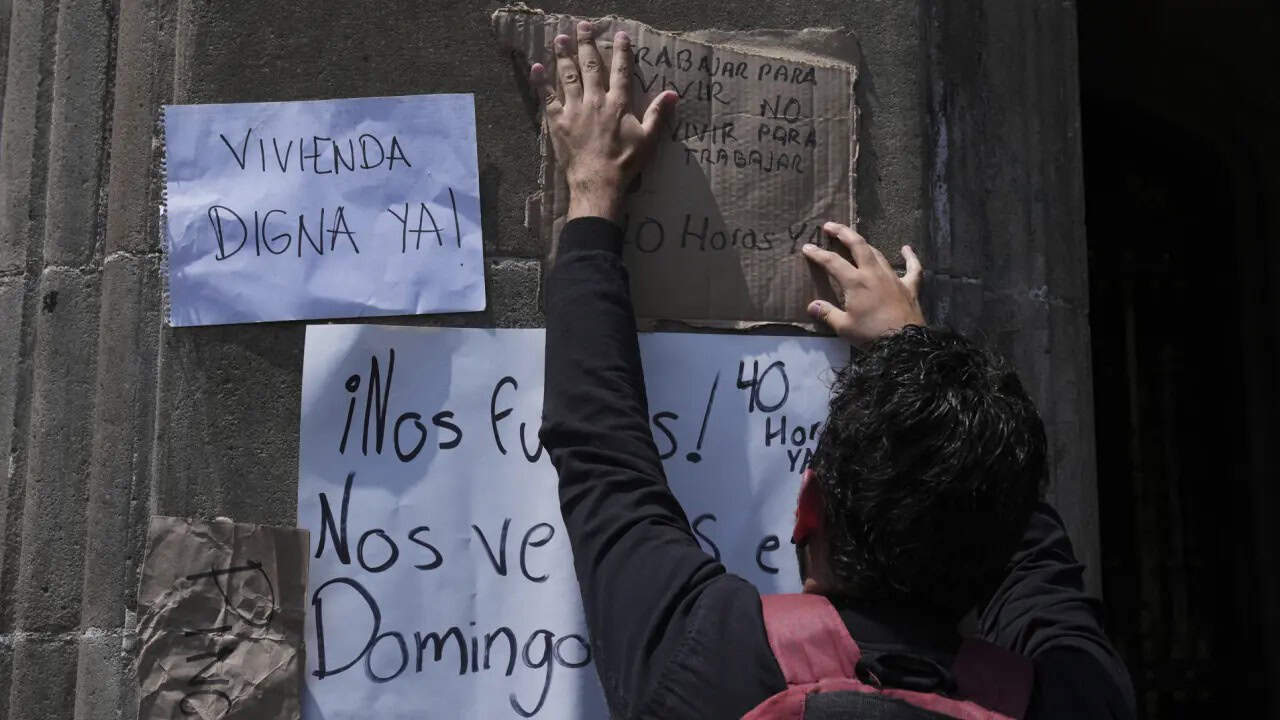 VIVIENDA
DIGNA YA!
TRABAJAR PARA
VIVIR NO
VIVIR PARA
TRABAJAR
40 Horas YA
¡Nos
40
Hor
YA
Nos
Domingo